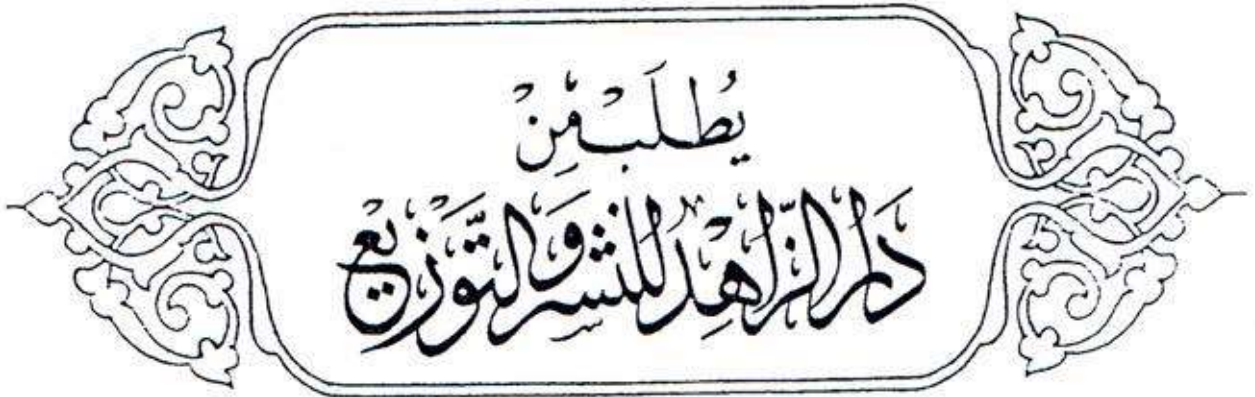 يُطلَبْ مِنْ
دَار الزَّاهِد للنشِر وَالتَّوَزيع